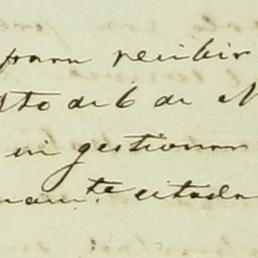 para recibir
to de 6 de
en gestionar
te citada